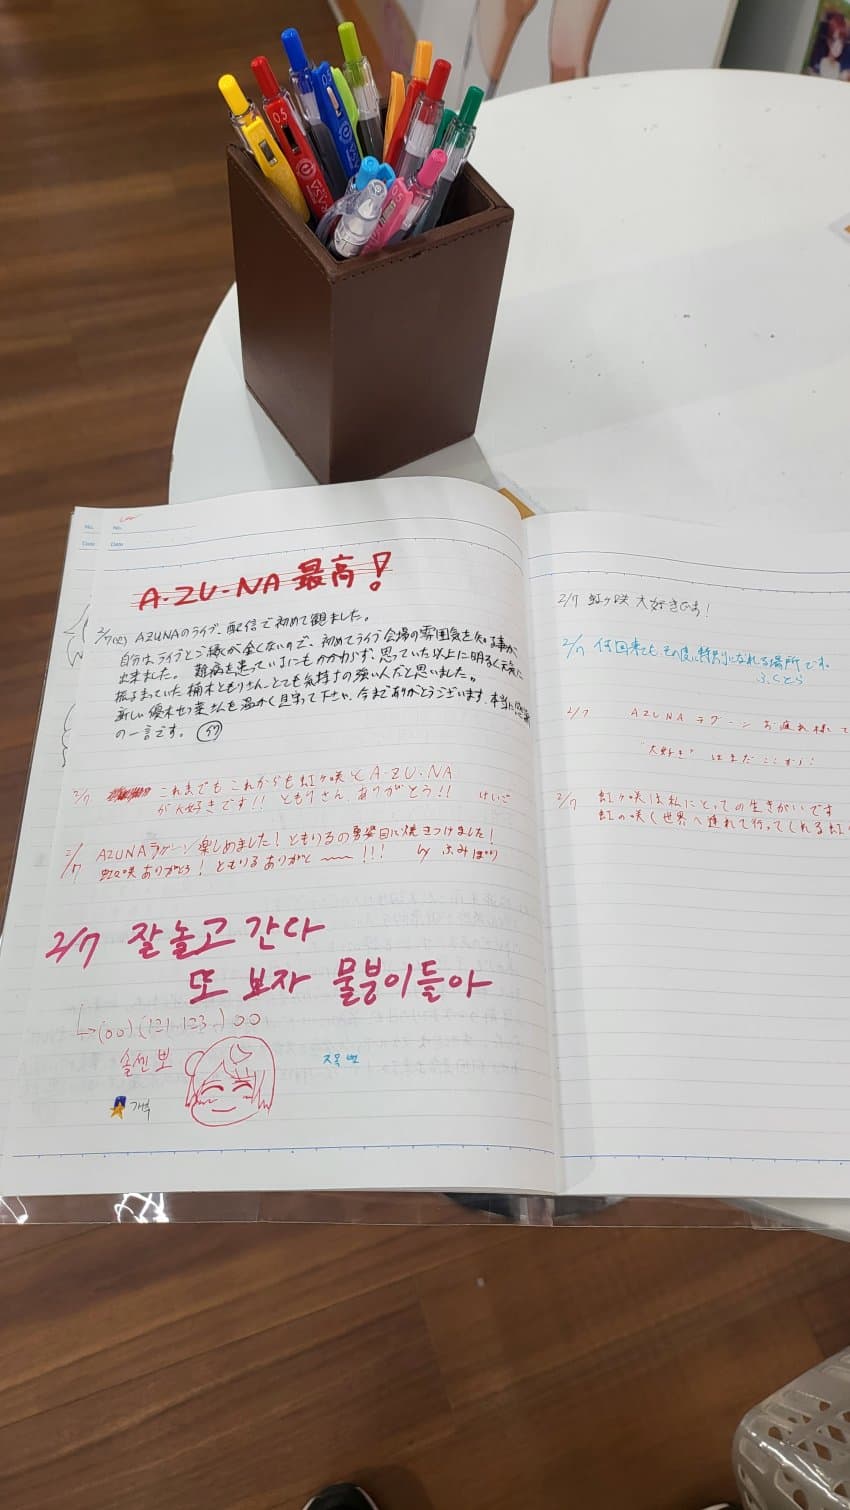 No.
No.
Date
Date
A・ZU・NA 最高!
2/7(火) AZUNAのライブ、配信で初めて観ました。
自分はライブとご縁が全くないので、初めてライブ会場の雰囲気を知る事が
出来ました。難病を患っているにもかかわらず、思っていた以上に明るく元気に
振るまっていた楠木ともりさん、とても気持ちの強い人だと思いました。
新しい優木せつ菜さんを温かく見守って下さい。今までありがとうございます。本当に感謝
の一言です。
2/7 これまでも これからも 虹ヶ咲とA・ZU・NA
が大好きです!! ともりさん、ありがとう!! けいご
2/7 AZUNAラグーン楽しめました!ともりるの勇姿目に焼きつけました!
虹ヶ咲ありがとう!ともりるありがと〜〜!!! by ふみ
2/7 잘 놀고 간다
또 보자 물붕이들아
↳(00)(121.123.)00
솔센뽀
개떡
2/7 虹ヶ咲 大好きです!
2/7 何回来ても その度に特別になれる場所です。
ふくとら
2/7 AZUNA ラグーン お疲れ様で
"大好き" はまだ
2/7 虹ヶ咲は私にとっての生きがいです
虹の咲く世界へ連れて行ってくれる虹
0.5
0.5
0.5
SARASA